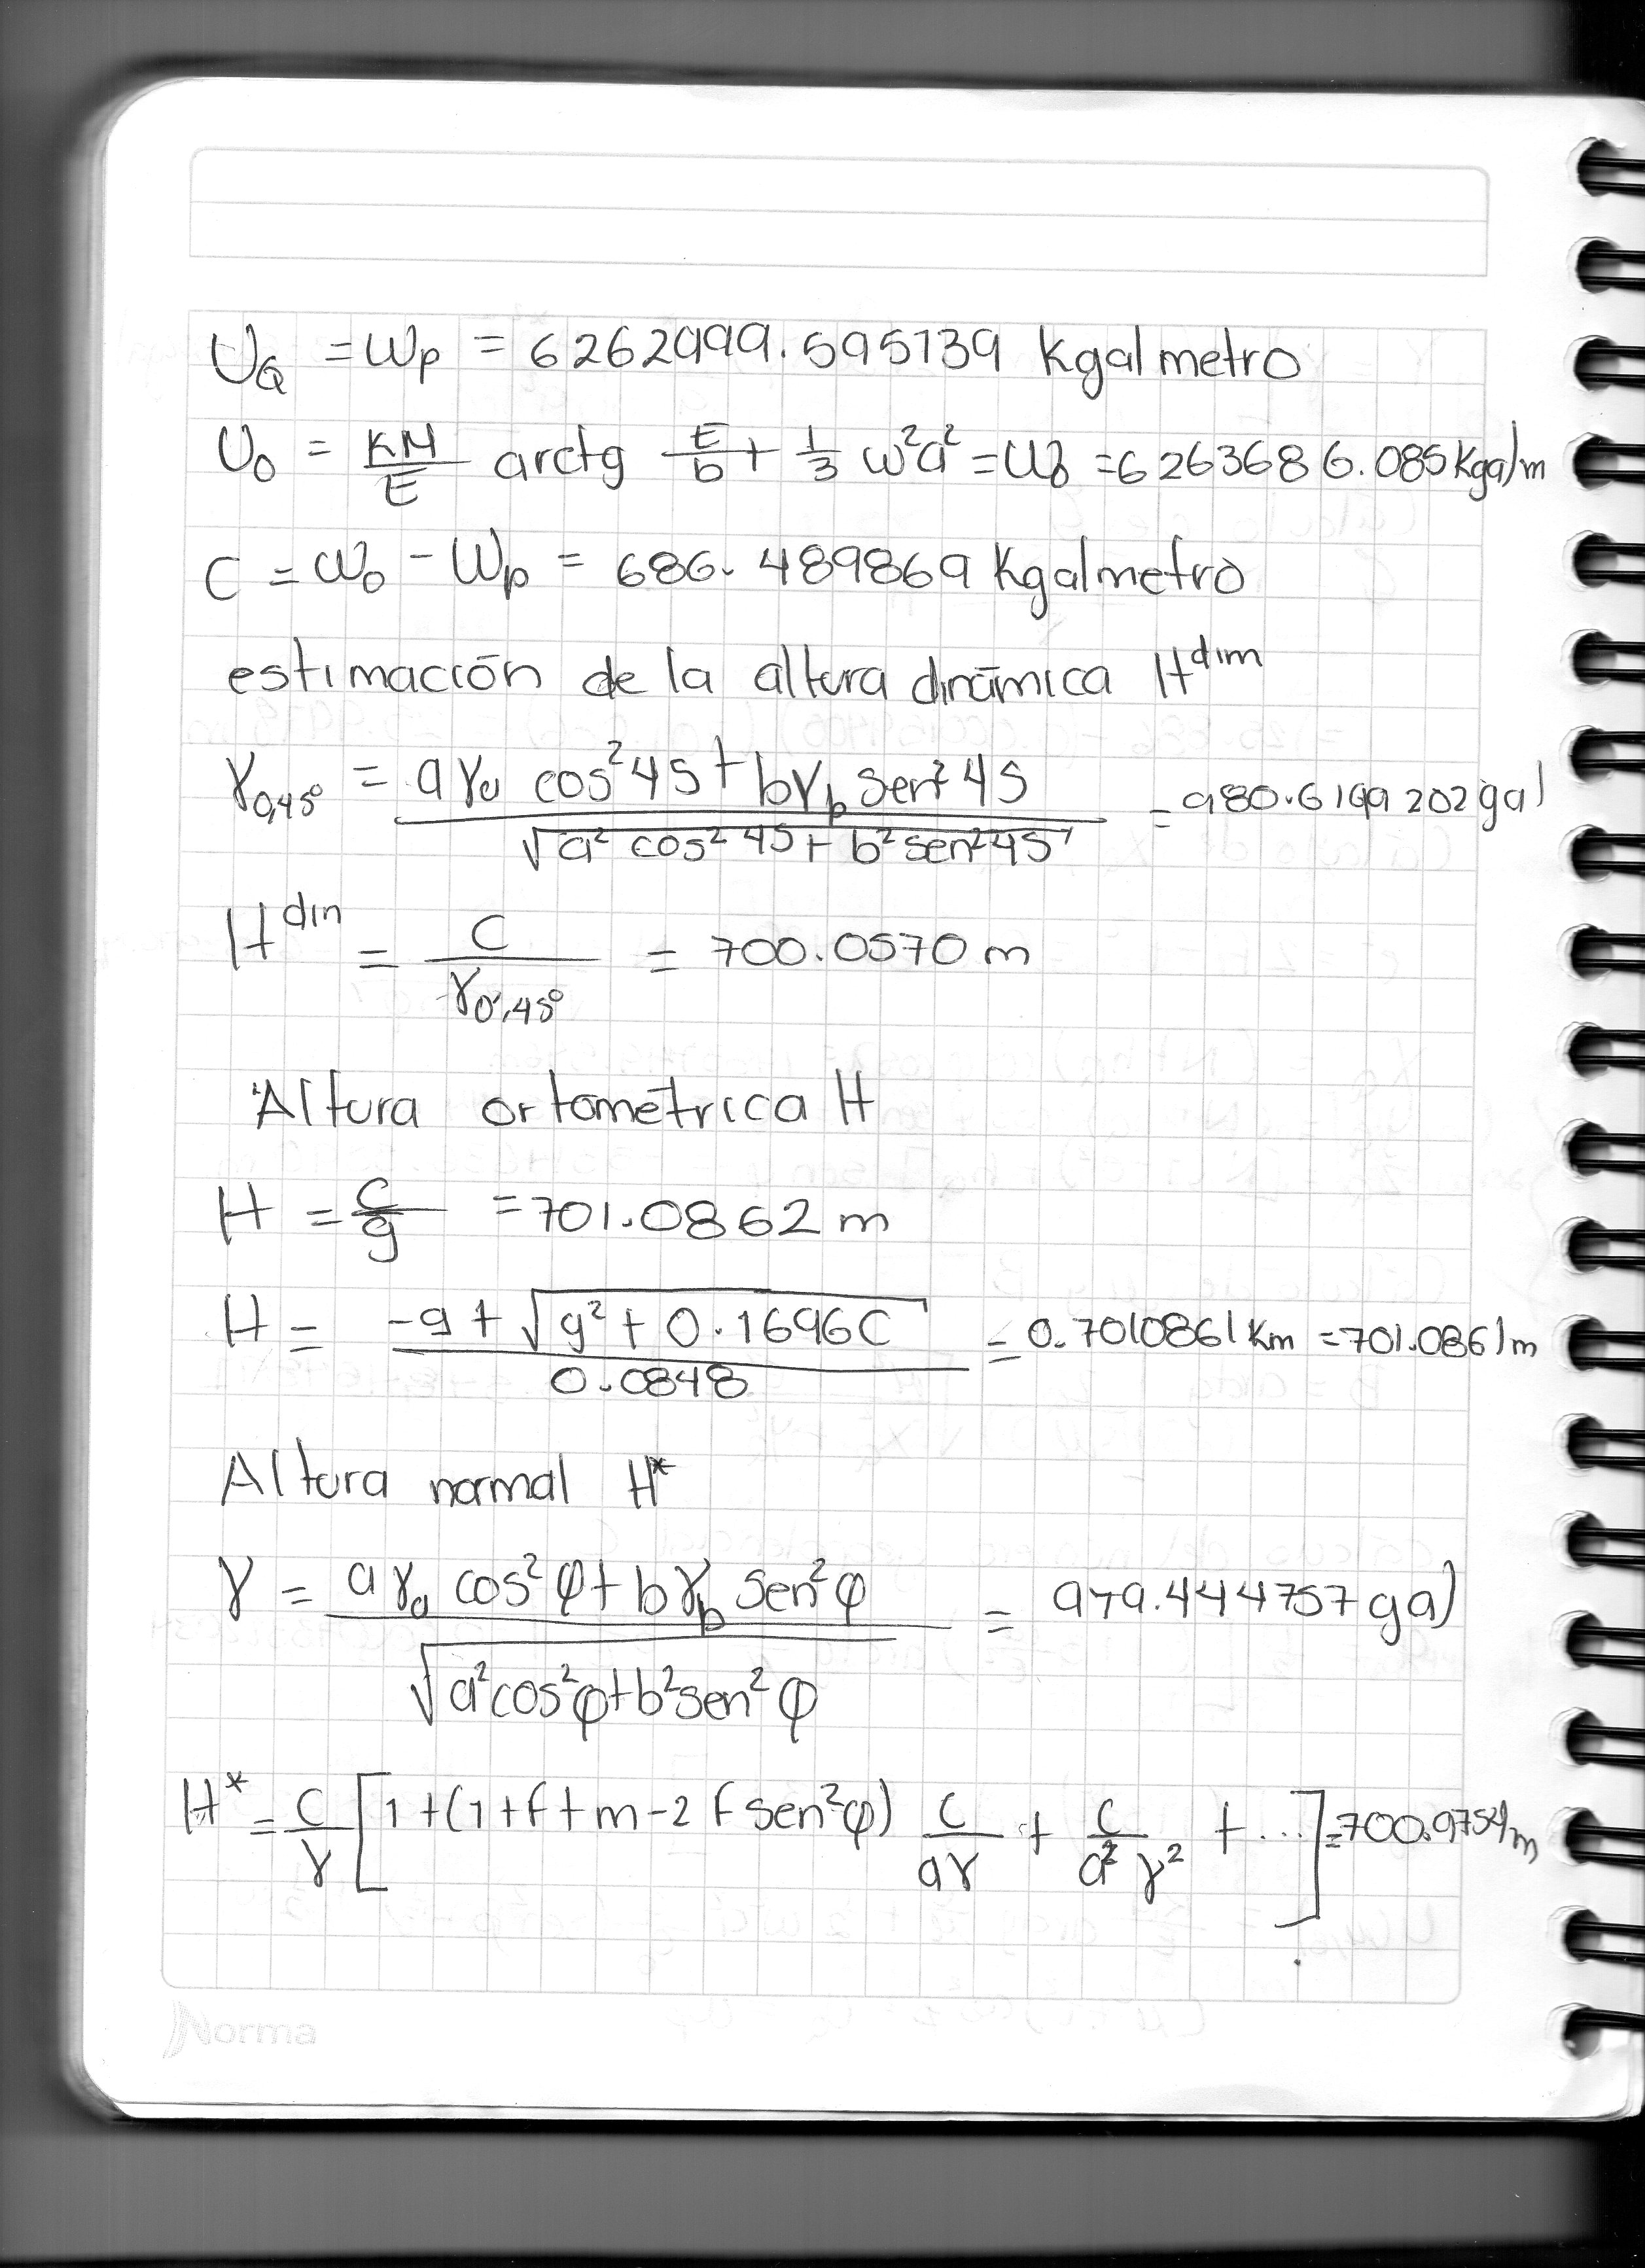 U_Q = W_P = 6262999.595139 Kgal metro
U_0 = KM/E arctg E/b + 1/3 ω²a² = W_0 = 6263686.085 Kgal m
C = W_0 - W_p = 686.489869 Kgal metro
estimación de la altura dinámica H^dim
γ_0,45° = (a γ_a cos² 45 + b γ_b sen² 45) / √(a² cos² 45 + b² sen² 45) = 980.6199202 gal
H^din = C / γ_0,45° = 700.0570 m
Altura ortométrica H
H = C/g = 701.0862 m
H = (-g + √(g² + 0.1696C)) / 0.0848 = 0.7010861 Km = 701.0861 m
Altura normal H*
γ = (a γ_a cos² φ + b γ_b sen² φ) / √(a² cos² φ + b² sen² φ) = 979.444757 gal
H* = C/γ [1 + (1 + f + m - 2 f sen² φ) C/aγ + C/a² γ² + ...] = 700.9754 m
Norma